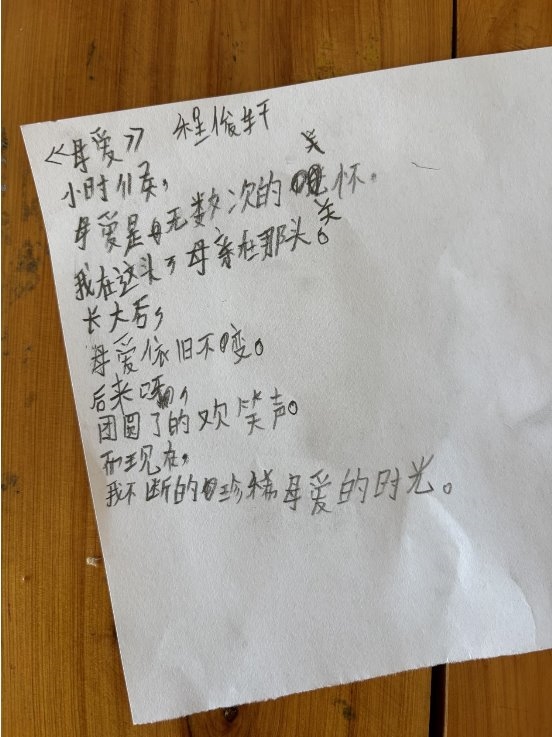 《母爱》 程俊轩
小时候,
母爱是无数次的关怀。
我在这头,母亲在那头。
长大后,
母爱依旧不变。
后来呀,
团圆了的欢笑声。
而现在,
我不断的珍稀母爱的时光。